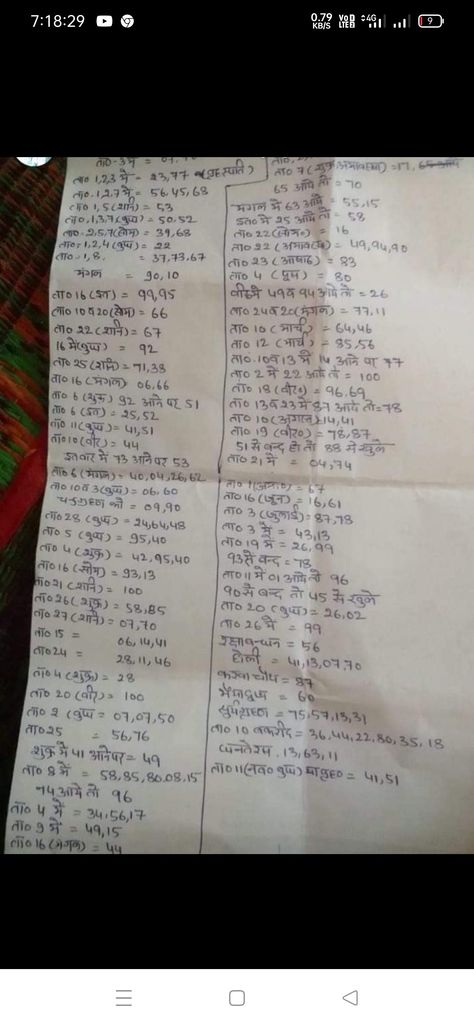 7:18:29
0.79 KB/S
4G
9
ता० 1,2,3 में = 23,77
ता०.1,2,7 में = 56,45,68
ता० 1,5 (शनि) = 53
ता०.1,3,7 (बुध) = 50,52
ता०.2,5,7 (सोम) = 39,68
ता०-1,2,4 (बुध) = 22
ता०-1,8. = 37,73,67
मंगल = 90,10
ता० 16 (इत) = 99,95
ता० 10 व 20 (सोम) = 66
ता० 22 (शनि) = 67
16 में (बुध) = 92
ता० 25 (शनि) = 71,38
ता० 16 (मंगल) = 06,66
ता० 6 (शुक्र) 92 आने पर 51
ता० 6 (इत) = 25,52
ता० 11 (बुध) = 41,51
ता० 10 (वीर) = 44
इतवार में 73 आने पर 53
ता० 6 (मंगल) = 40,04,26,62
ता० 10 व 3 (बुध) = 06,60
चन्द्रग्रहण को = 09,90
ता० 28 (बुध) = 24,64,48
ता० 5 (बुध) = 95,40
ता० 4 (शुक्र) = 42,95,40
ता० 16 (सोम) = 93,13
ता० 21 (शनि) = 100
ता० 26 (शुक्र) = 58,85
ता० 27 (शनि) = 07,70
ता० 15 = 06,14,41
ता० 24 = 28,11,46
ता० 4 (शुक्र) = 28
ता० 20 (वीर) = 100
ता० 2 (बुध) = 07,07,50
ता० 25 = 56,76
शुक्र में 41 आने पर = 49
ता० 8 में = 58,85,80,08,15
94 आये तो 96
ता० 4 में = 34,56,17
ता० 9 में = 49,15
ता० 16 (मंगल) = 44
ता० 7 (शुक्र अमावस्या) = 17,
65 आये तो = 70
मंगल में 63 आये = 55,15
इत० में 25 आये तो = 58
ता० 22 (सोम०) = 16
ता० 22 (अमावस्या) = 49,94,90
ता० 23 (आषाढ़) = 83
ता० 4 (बुध) = 80
49 व 94 आये तो = 26
ता० 24 व 20 (मंगल) = 77,11
ता० 10 (मार्च) = 64,46
ता० 12 (मार्च) = 85,56
ता०.10 व 13 में 14 आने पर 77
ता० 2 में 22 आये तो = 100
ता० 18 (वीर०) = 96,69
ता० 13 व 23 में 87 आये तो = 78
ता० 10 (अगस्त) = 14,41
ता० 19 (वीर०) = 78,87
51 से बन्द हो तो 88 से खुले
ता० 21 में = 04,74
ता० 1 = 67
ता० 16 (जून) = 16,61
ता० 3 (जुलाई) = 87,78
ता० 3 में = 43,13
ता० 19 में = 26,99
93 से बन्द = 78
ता० 11 में 01 आये तो 96
90 से बन्द तो 45 से खुले
ता० 20 (बुध) = 26,02
ता० 26 में = 99
रक्षाबन्धन = 56
होली = 41,13,07,70
करवा चौथ = 87
भैयादूज = 60
सूर्यग्रहण = 75,57,13,31
ता० 10 बकरीद = 36,44,22,80,35,18
धनतेरस. 13,63,11
ता० 11 (नव० बुध) = 41,51